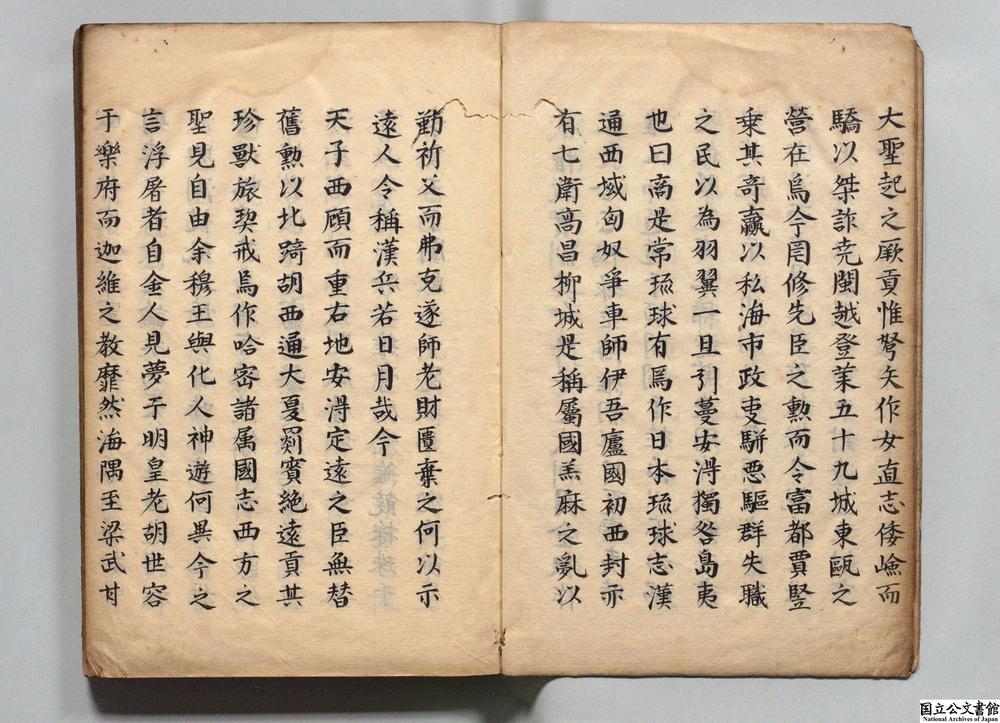 大聖起之厥貢惟弩矢作女直志倭嶮而
驕以桀詐尭閩越登莱五十九城東甌之
營在焉今罔修先臣之勲而令富都賈豎
乗其奇羸以私海市政叓駢惡驅群失職
之民以為羽翼一旦引蔓安淂獨咎島夷
也曰高是常琉球有焉作日本琉球志漢
通西域匈奴爭車師伊吾廬國初西封示
有七衛高昌柳城是稱屬國羔麻之亂以
勤祈父而弗克遂師老財匱棄之何以示
遠人今稱漢兵若日月哉今
天子西顧而重右地安淂定遠之臣無替
舊勲以比踦胡西通大夏罽賓絶遠貢其
珍獸旅契戒焉作哈密諸属國志西方之
聖見自由余穆王與化人神遊何異今之
言浮屠者自金人見夢于明皇老胡世容
于樂府而迦維之教靡然海隅至梁武甘
国立公文書館
National Archives of Japan